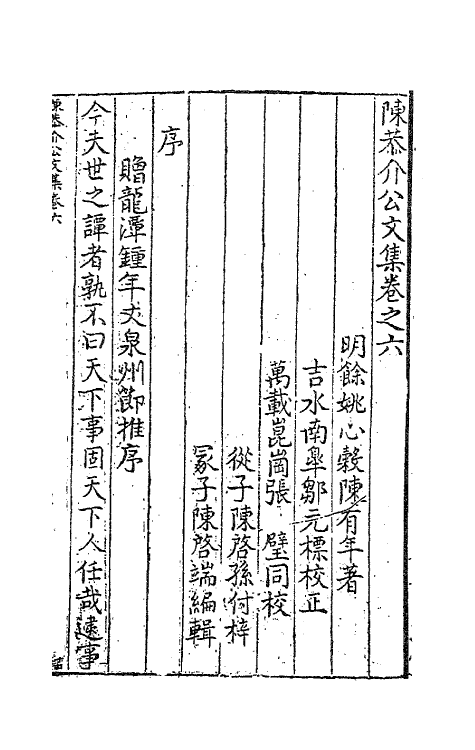 陳恭介公文集卷之六
明餘姚心穀陳有年著
吉水南臯鄒元標校正
萬載崑崗張 璧同校
從子陳啓孫付梓
冢子陳啓端編輯
序
贈龍潭鍾年丈泉州節推序
今夫世之譚者孰不曰天下事固天下人任哉遠事
陳恭介公文集卷六